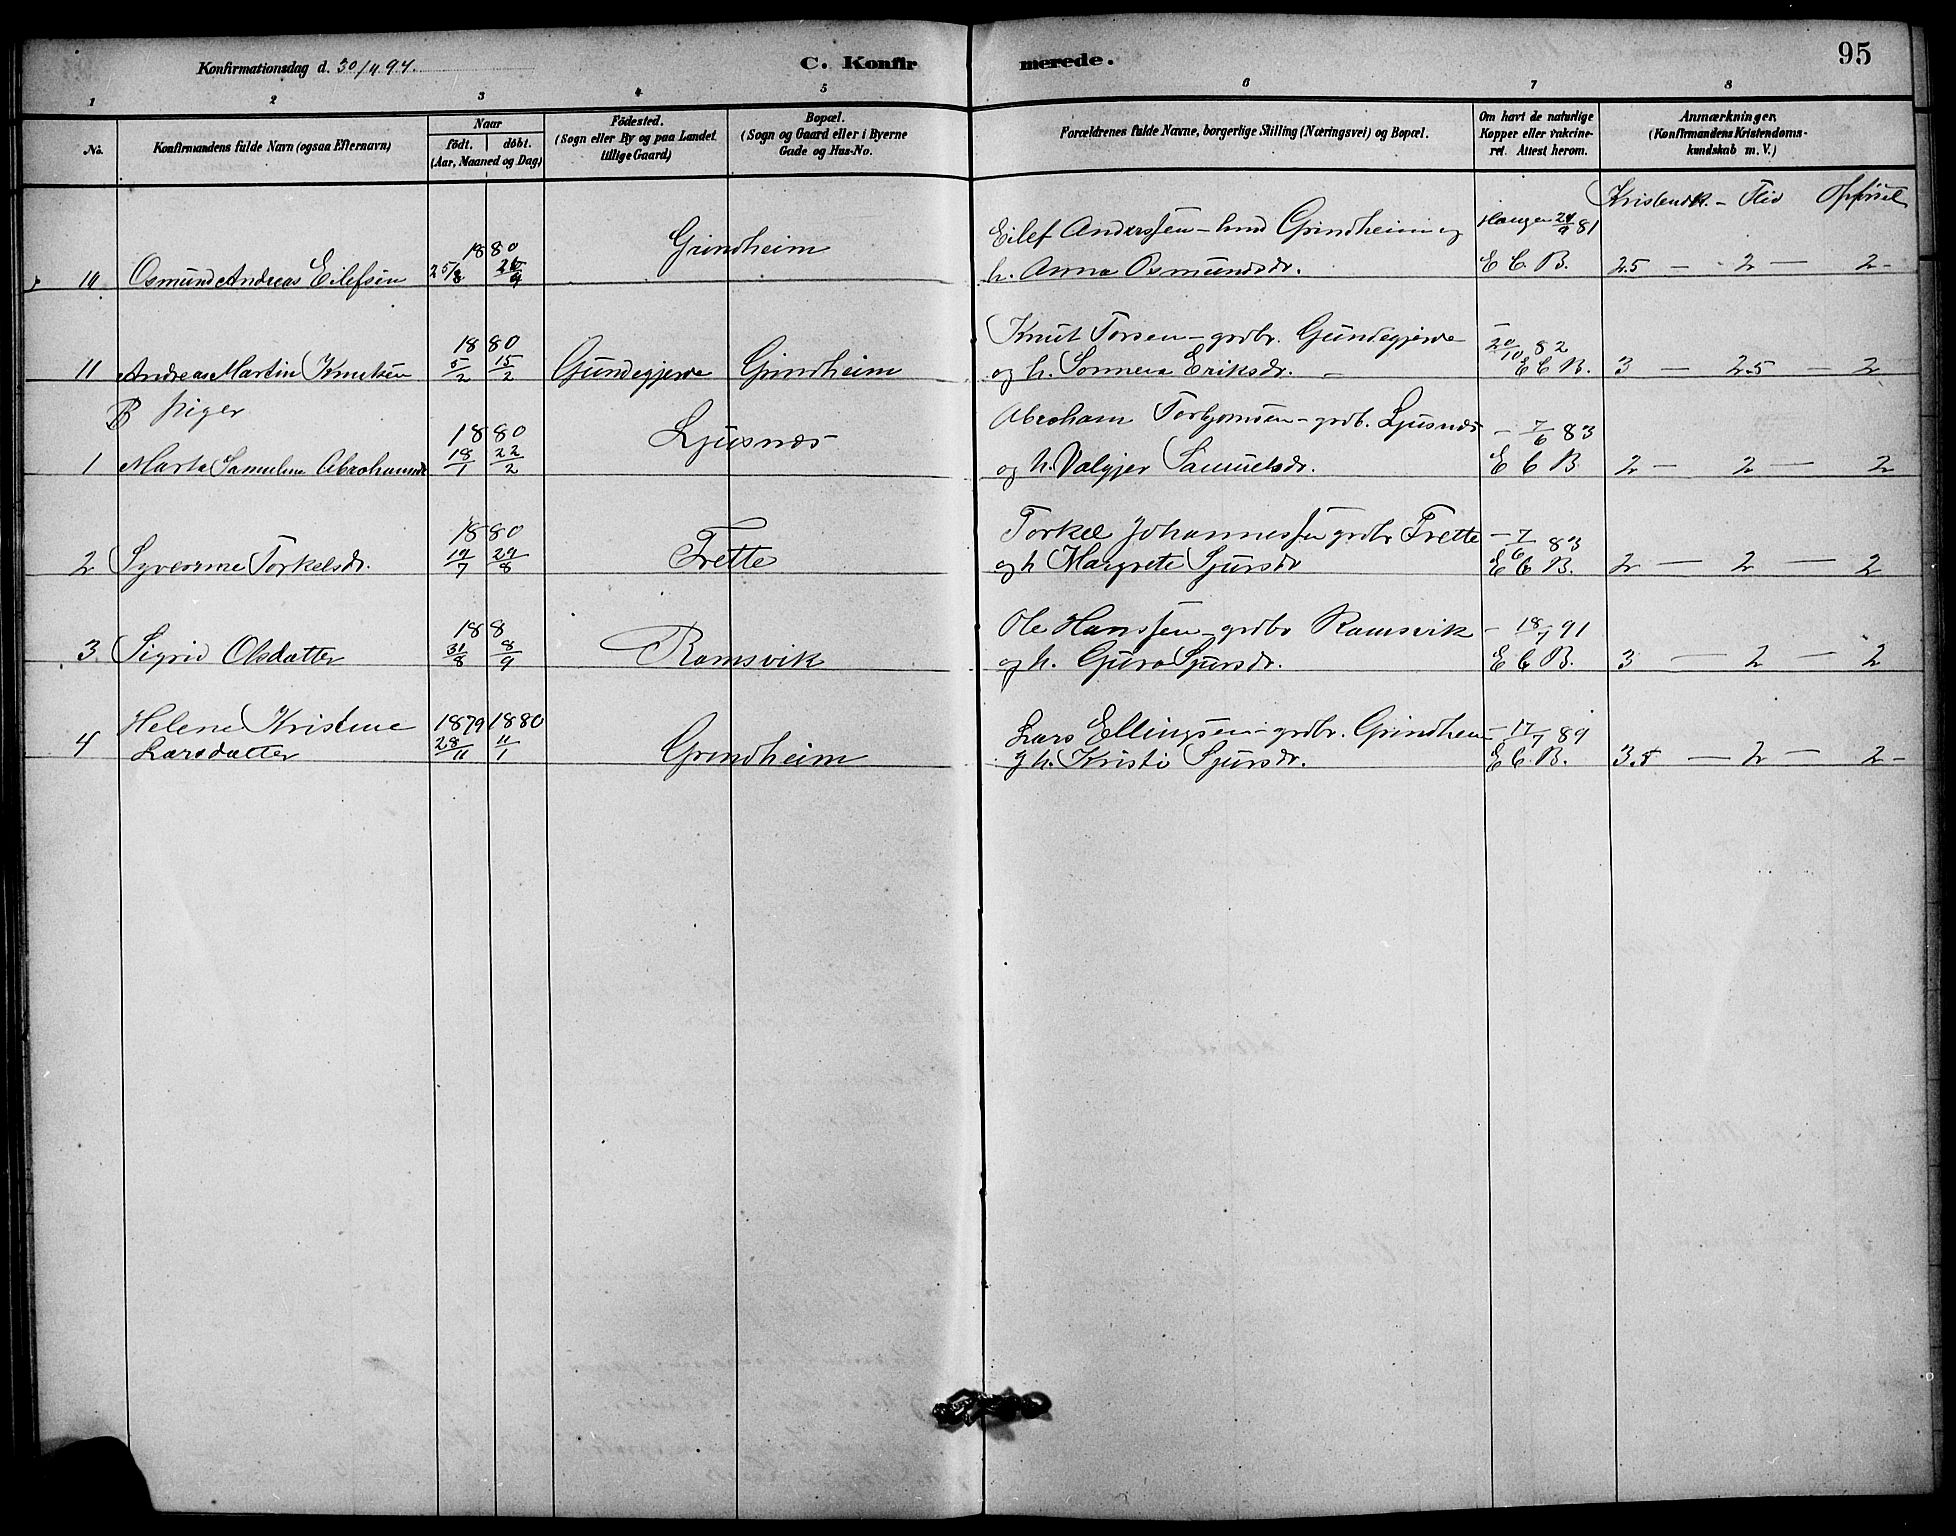 Konfirmationsdag d. 30/ 94.
C. Konfirmerede.
95
1 2 3 4 5 6 7 8
No.
Konfirmandens fulde Navn (ogsaa Efternavn)
Naar
födt. döbt.
(Aar, Maaned og Dag)
Födested.
(Sogn eller By og paa Landet
tillige Gaard)
Bopæl.
(Sogn og Gaard eller i Byerne
Gade og Hus-No.
Forældrenes fulde Navne, borgerlige Stilling (Næringsvei) og Bopæl.
Om havt de naturlige
Kopper eller vakcine-
ret. Attest herom.
Anmærkninger,
(Konfirmandens Kristendoms-
kundskab m. V.)
Kristendk. - Flid Opførsel
10 Osmund Andreas Eilefsen 1880 25/8 26/9 Grindheim
Eilef Anderssen - Grindheim og
h. Anna Osmundsdr.
Haugen 24/9 81
E C B. 2.5 — 2 — 2 -
11 Andreas Martin Knutsen 1880 5/2 15/2 Gundegjerde Grindheim
Knut Torsen - grdbr. Gundegjerde
og h. Eriksdr. -
- 20/10 82
E C B. 3 — 2.5 — 2
B piger
1 Marta Samuline Abrahamsdr 1880 18/1 22/2 Ljusnes
Abraham - grdb. Ljusnes
og h. Valgjer Samuelsdr.
- 7/6 83
E C B 2 — 2 — 2
2 Torkelsdr. 1880 19/7 29/8 Frette
Torkel Johannessen grdbr Frette
og h Margrete Sjursdr
- 7/6 83
E C B. 2 — 2 — 2
3 Sigrid Olsdatter 188 31/8 8/9 Ramsvik
Ole Hanssen - grdbr Ramsvik
og h. Guro Sjursdr.
- 18/7 91
E C B. 3 — 2 — 2
4 Helene Kristine
Larsdatter
1879 28/11 1880 11/1 Grindheim
Lars Ellingsen - grdbr. Grindheim
og h. Kristi Sjursdr.
- 17/7 89
E C. B. 3.5 — 2 — 2 -